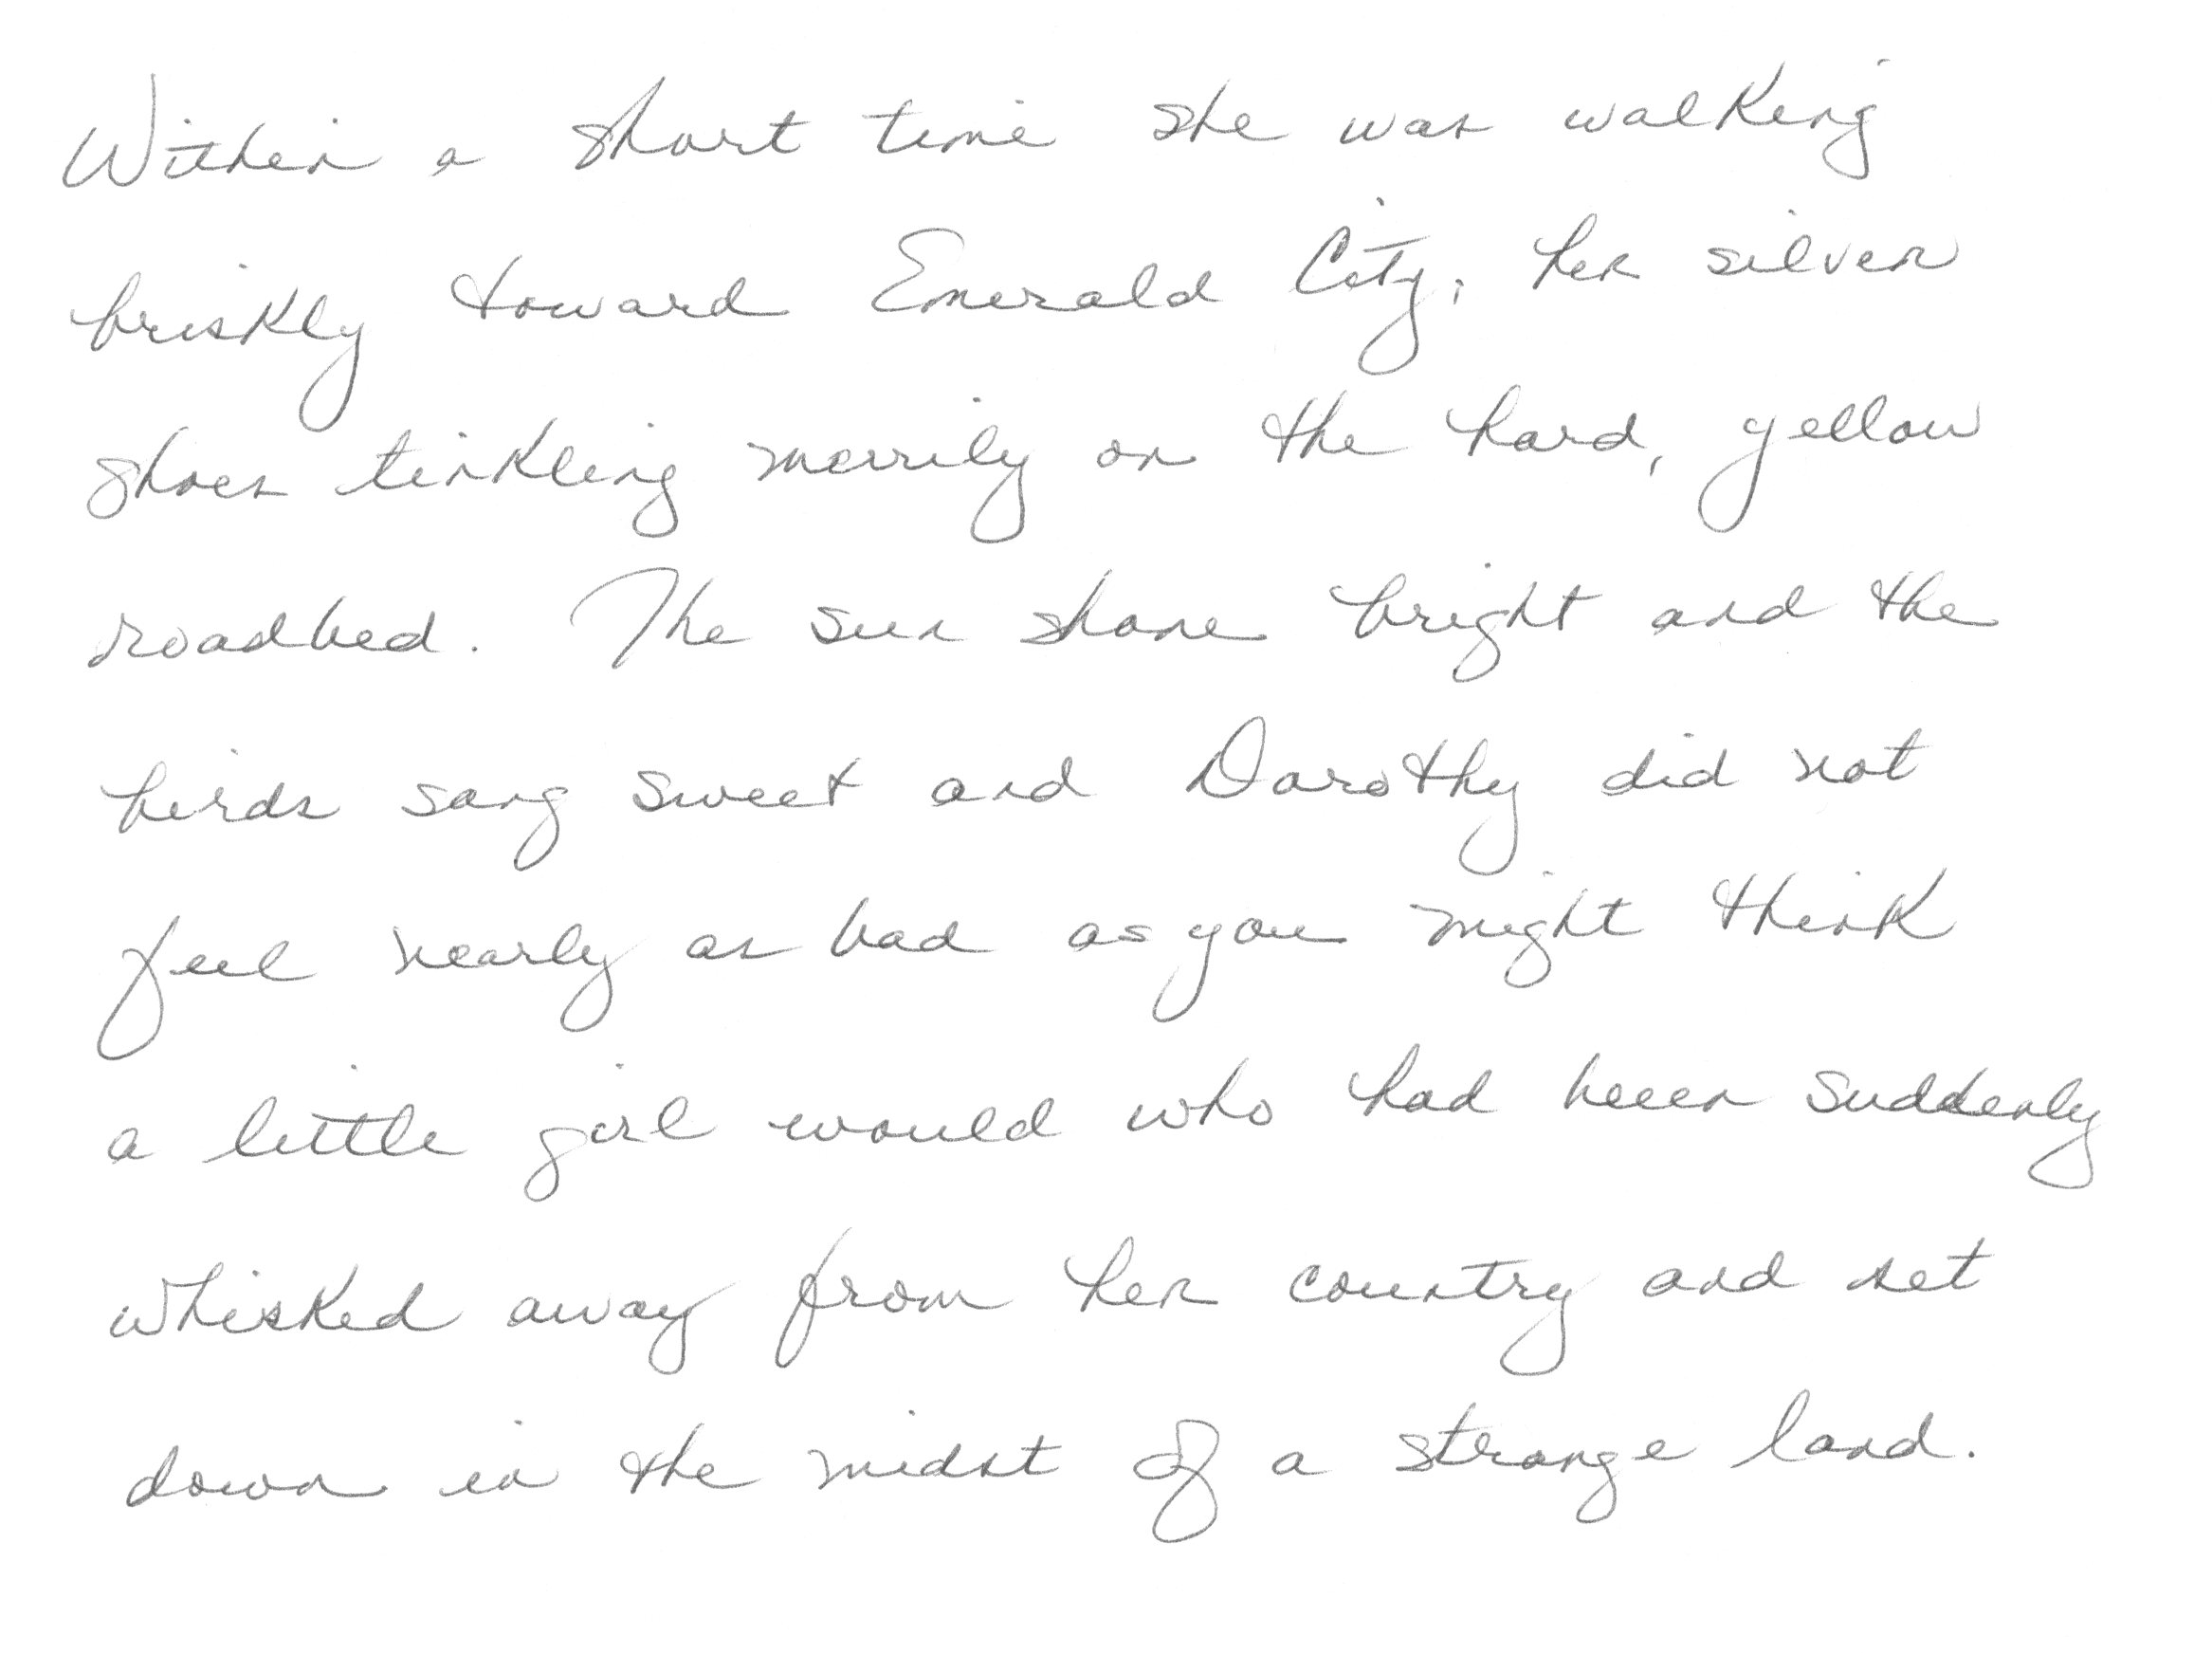 Within a short time she was walking
briskly toward Emerald City, her silver
shoes tinkling merrily on the hard, yellow
roadbed. The sun shone bright and the
birds sang sweet and Dorothy did not
feel nearly as bad as you might think
a little girl would who had been suddenly
whisked away from her country and set
down in the midst of a strange land.